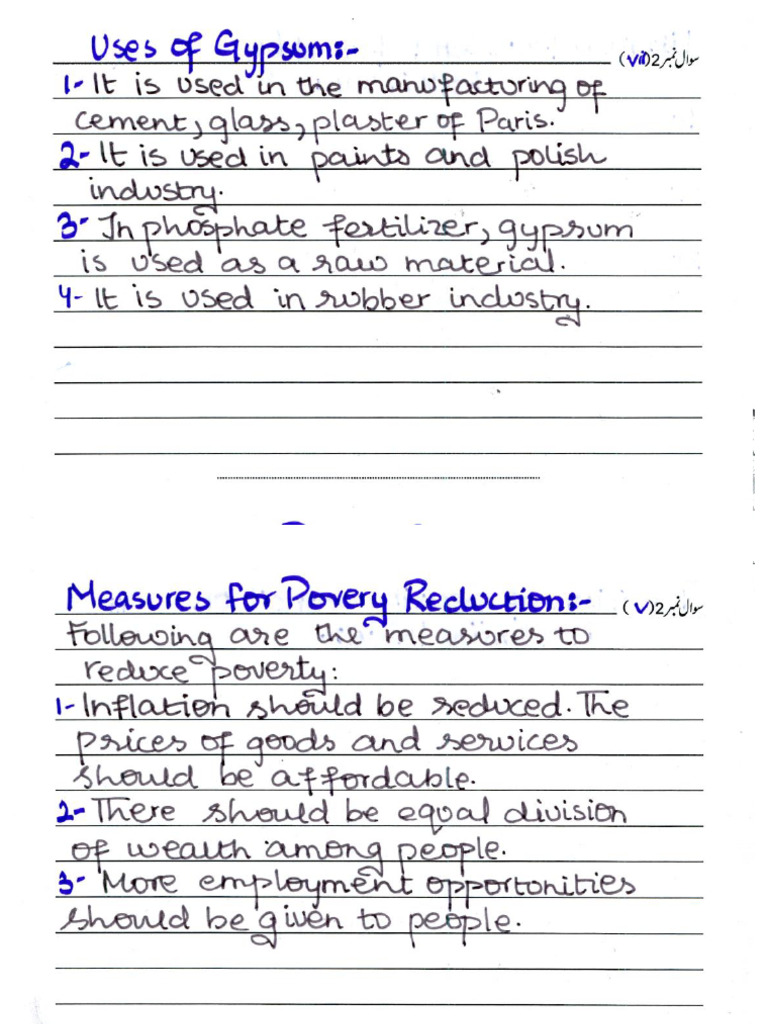 Uses of Gypsum:- (vii) سوال نمبر 2
1- It is used in the manufacturing of
cement, glass, plaster of Paris.
2- It is used in paints and polish
industry.
3- In phosphate fertilizer, gypsum
is used as a raw material.
4- It is used in rubber industry.
Measures for Povery Reduction:- (v) سوال نمبر 2
Following are the measures to
reduce poverty:
1- Inflation should be reduced. The
prices of goods and services
should be affordable.
2- There should be equal division
of wealth among people.
3- More employment opportunities
should be given to people.